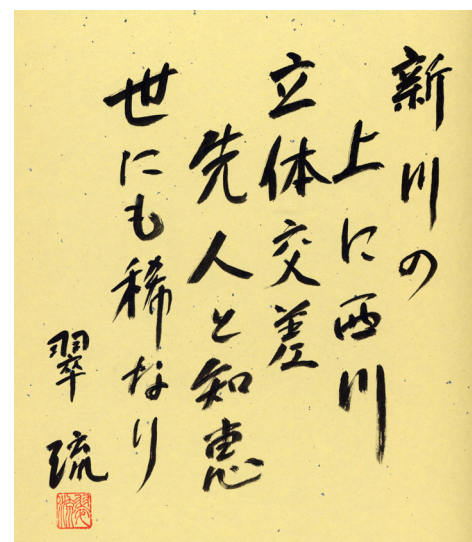 新川の
上に西川
立体交差
先人と知恵
世にも稀なり
翠琉